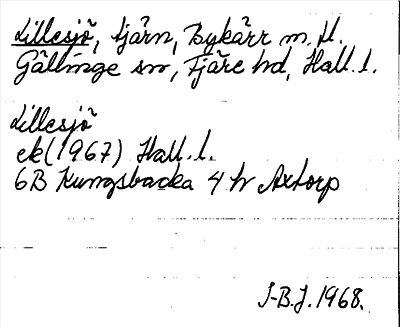 Lillesjö, tjärn, Bykärr m. fl.
Gällinge sn, Fjäre hd, Hall. l.
Lillesjö
ek (1967) Hall. l.
6B Kungsbacka 4 h Axtorp
J-B.J. 1968.